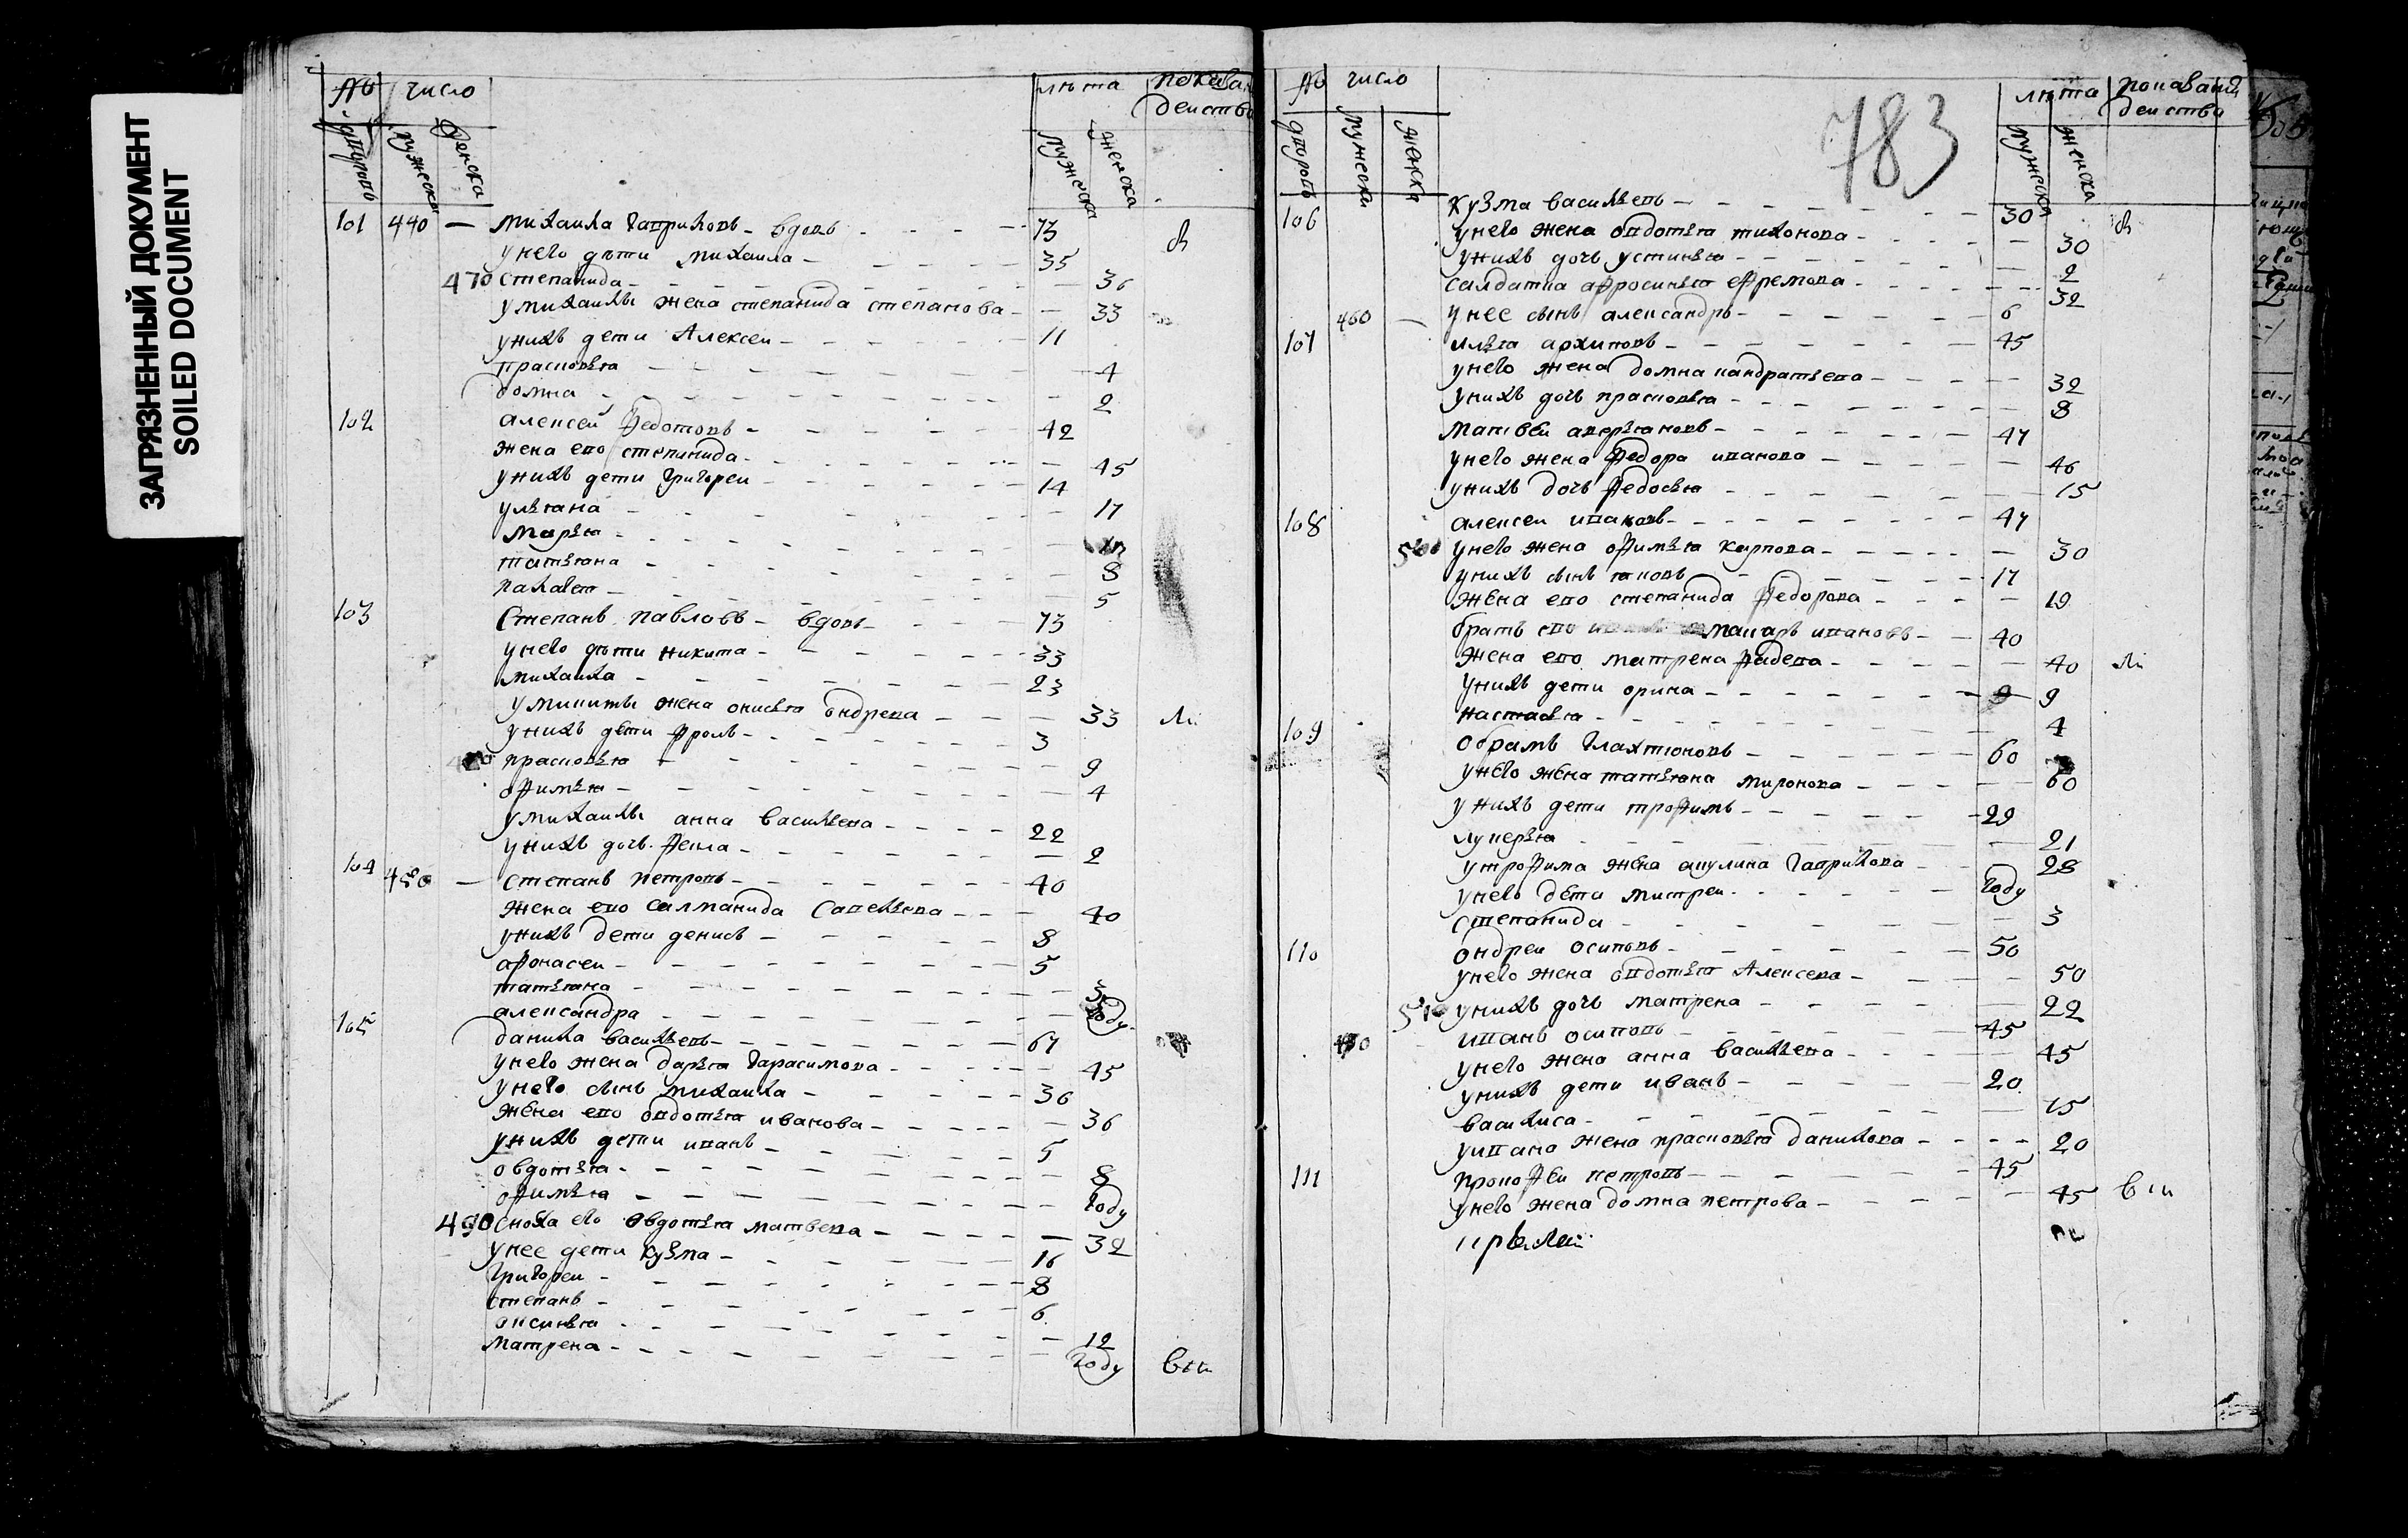 ЗАГРЯЗНЕННЫЙ ДОКУМЕНТ
SOILED DOCUMENT
№ число лѣта показан
действо
дворовъ мужеска женска мужеска женска
101 440 — михаила гавриловъ - вдовъ 73
у него дѣти михаила - 35
470 степанида - 36
у михаилы жена степанида степанова - 33
у нихъ дети Алексеи - 11
прасковья 4
домна 2
102 алексеи федотовъ - 42
жена ево степанида - 45
у нихъ дети григореи 14
ульяна 17
марья
татьяна 8
палагея 5
103 Степанъ павловъ - вдовъ 73
у него дѣти никита - 33
михаила 23
у микиты жена онисья ондреева 33
у нихъ дети фролъ - 3
прасковья 9
офимья - 4
у михаилы анна васильева - 22
у нихъ дочь фекла - 2
104 450 — степанъ петровъ - 40
жена ево салманида савельева - 40
у нихъ дети денисъ - 8
афонасеи - 5
татьяна 3
александра году
105 данила васильевъ - 67
у него жена дарья гарасимова - 45
у него сынъ михаила - 36
жена ево овдотья иванова - 36
у нихъ дети иванъ - 5
овдотья - 8
офимья - году
490 сноха ево овдотья матвеева - 32
у нее дети кузма - 16
григореи - 8
степанъ - 6
аксинья 12
матрена - году
№ число лѣта показание
действо
дворовъ мужеска женска мужеска женска
783
106 кузма васильевъ - 30
у него жена овдотья тихонова - 30
у нихъ дочь устинья - 2
салдатка афросинья ефремова - 32
460 — у нее сынъ александръ - 6
107 илья архиповъ - 45
у него жена домна кандратьева - 32
у нихъ дочь прасковья - 8
матвеи аверьяновъ - 47
у него жена федора иванова - 46
у нихъ дочь федосья - 15
108 алексеи ивановъ - 47
500 у него жена офимья карпова - 30
у нихъ сынъ яковъ 17
жена ево степанида федорова - 19
братъ ево макаръ ивановъ - 40
жена ево матрена фадеева - 40
у нихъ дети орина - 9
настасья - 4
109 обрамъ галахтионовъ - 60
у него жена татьяна миронова - 60
у нихъ дети трофимъ - 29
лукерья 21
у трофима жена акулина гаврилова 28
у него дети митреи - году
степанида 3
110 ондреи осиповъ - 50
у него жена овдотья Алексеева - 50
510 у нихъ дочь матрена - 22
иванъ осиповъ - 45
у него жена анна васильева - 45
у нихъ дети иванъ - 20
василиса - 15
у ивана жена прасковья данилова - 20
111 прокофеи петровъ - 45
у него жена домна петрова - 45